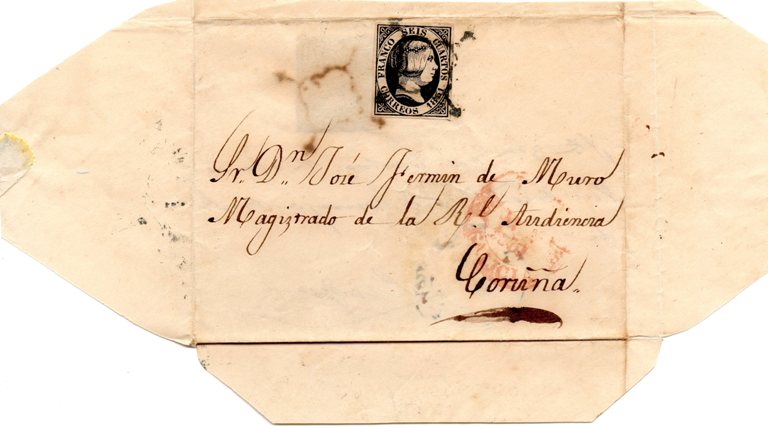 FRANCO SEIS CUARTOS
CORREOS 1851
Sr. Dn. José Fermin de Muro
Magistrado de la Rl. Audiencia
Coruña.